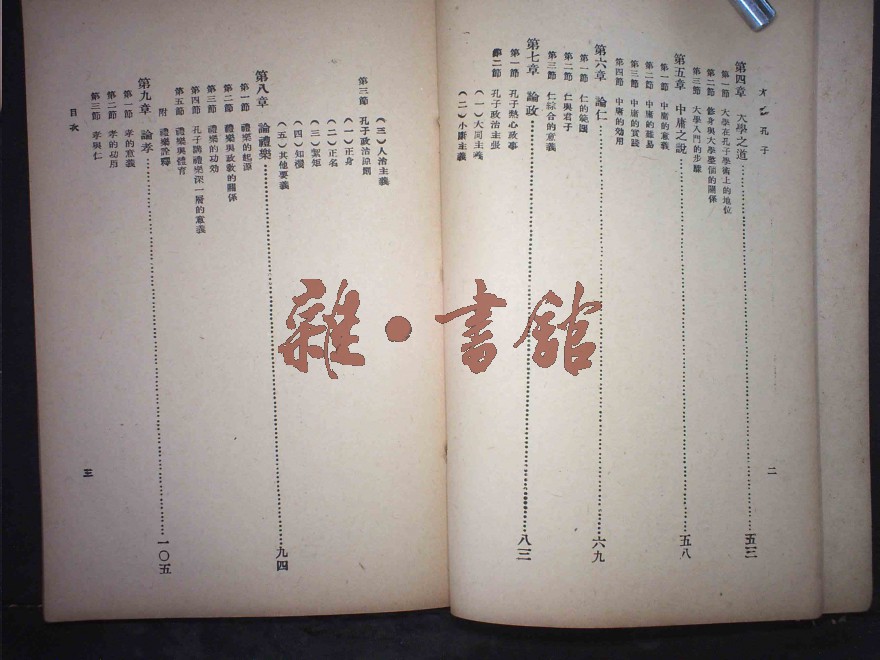 孔子
第四章 大學之道 五三
第一節 大學在孔子學術上的地位
第二節 修身與大學整個的關係
第三節 大學入門的步驟
第五章 中庸之說 五八
第一節 中庸的意義
第二節 中庸的難易
第三節 中庸的實踐
第四節 中庸的効用
第六章 論仁 六九
第一節 仁的範圍
第二節 仁與君子
第三節 仁綜合的意義
第七章 論政 八三
第一節 孔子熱心政事
第二節 孔子政治主張
(一)大同主義
(二)小康主義
二
(三)人治主義
第三節 孔子政治原則
(一)正身
(二)正名
(三)絜矩
(四)知機
(五)其他要義
第八章 論禮樂 九四
第一節 禮樂的起源
第二節 禮樂與政教的關係
第三節 禮樂的功効
第四節 孔子講禮樂深一層的意義
第五節 禮樂與體育
附 禮樂詮釋
第九章 論孝 一〇五
第一節 孝的意義
第二節 孝的功用
第三節 孝與仁
目次
三
雜·書館